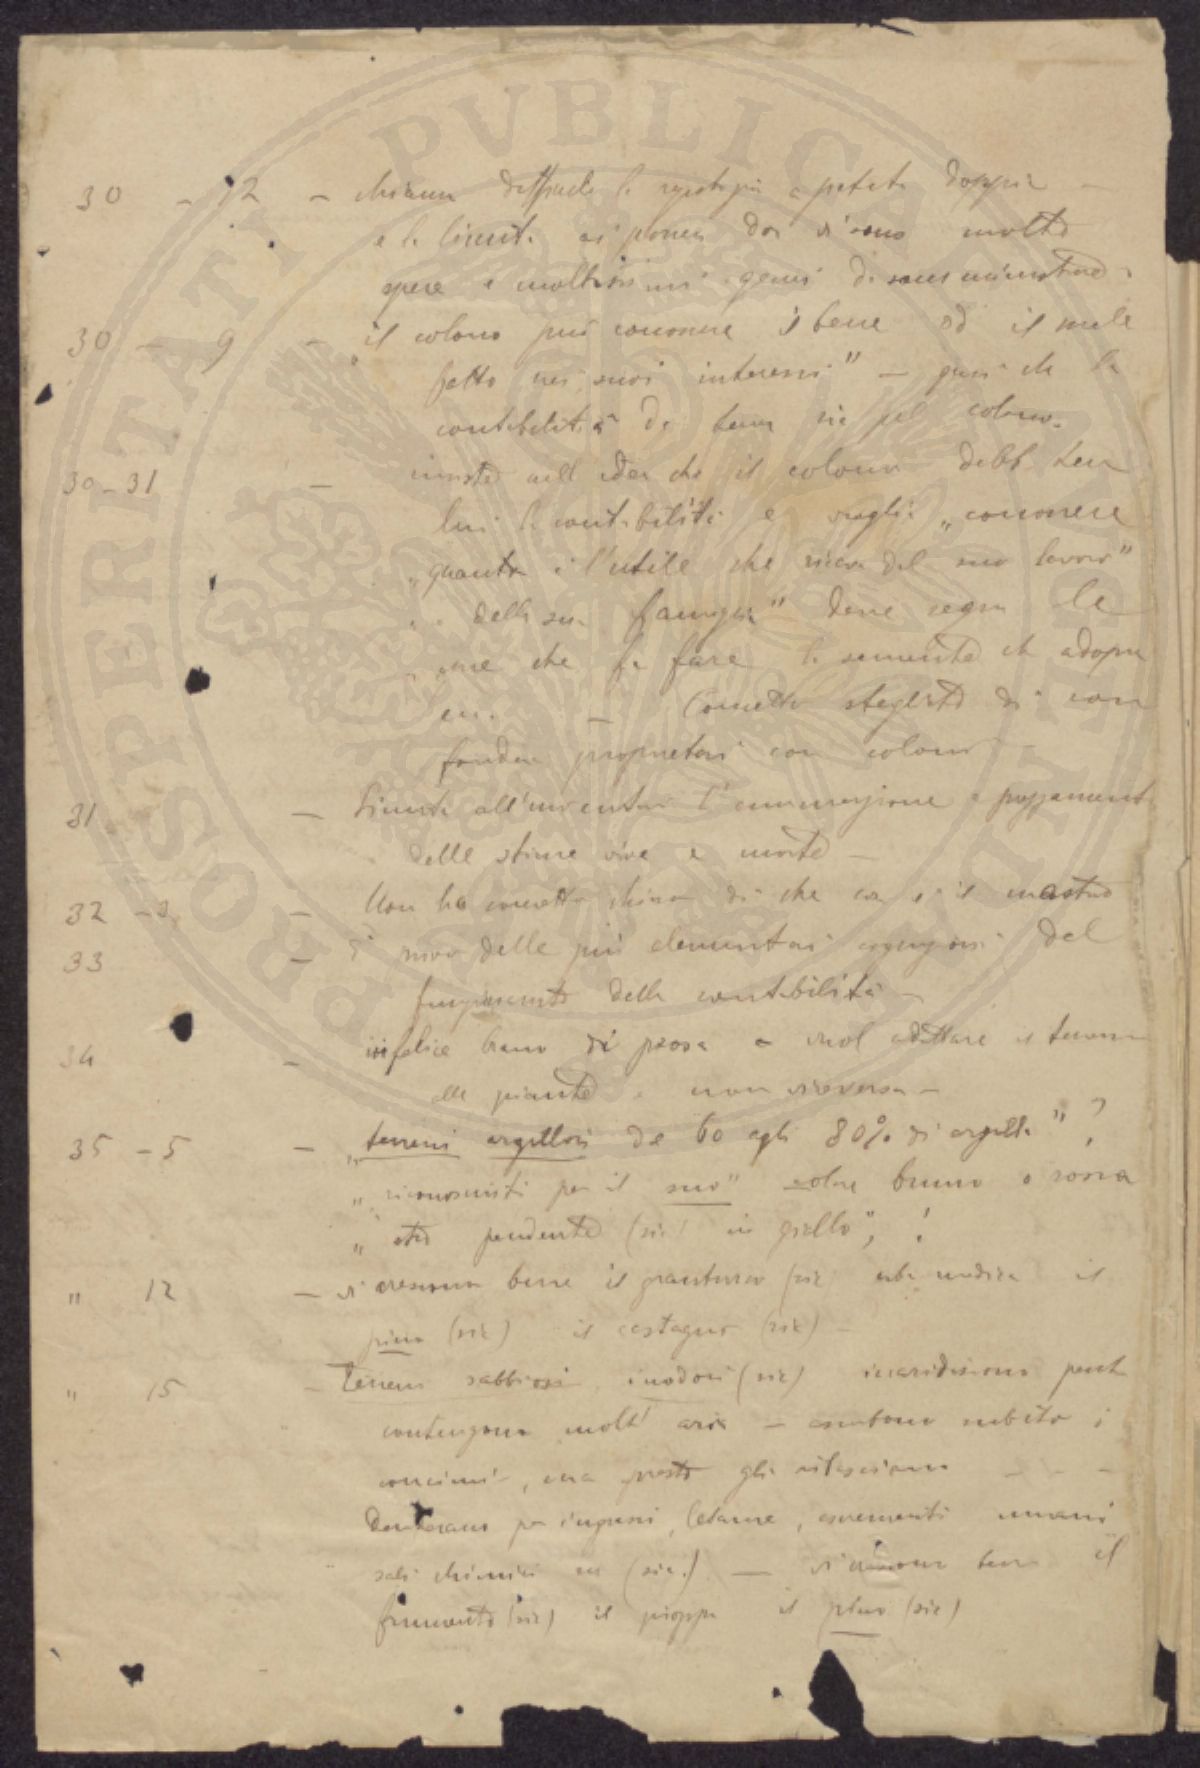 PROSPERITATI PVBLICAE
30 - 12 - chiama difficile la partita doppia -
e la limita ai poderi dove vi sono molte
spese e moltissimi generi di
30 - 9 - "il colono può conoscere il bene od il male
fatto nei suoi interessi" - quasi che la
contabilità da tener sia pel colono.
30-31 - insiste nell'idea che il colono debba tener
lui la contabilità e voglia "conoscere
"quanto è l'utile che ricava dal suo lavoro"
" " della sua famiglia" deve segnar le
opere che fa fare la semente che adopra
ecc. - Concetto sbagliato di con
fondere proprietari con coloni -
31 - Limita all'inventario l'enumerazione e
delle stime vive e morte -
32 - Non ha concetto chiaro di che cosa è il mastro
33 - È privo delle più elementari cognizioni del
funzionamento della contabilità -
34 - infelice brano di prosa e vuol adattare il terreno
alle piante e non viceversa -
35 - 5 - "terreni argillosi da 60 agli 80% di argilla" ?
"riconosciuti per il suo" colore bruno o rossa
" pendente (sic) in giallo", !
" 12 - vi crescono bene il granturco (sic) erba medica il
pino (sic) il castagno (sic) -
" 15 - Terreni sabbiosi inodori (sic) inaridiscono
contengono molt'aria - assorbono subito i
concimi -, ma presto gli rilasciano - - -
per ingrassi, letame, escrementi umani
sali chimici ecc (sic.) - vi crescono bene il
frumento (sic) il pioppo il pino (sic)